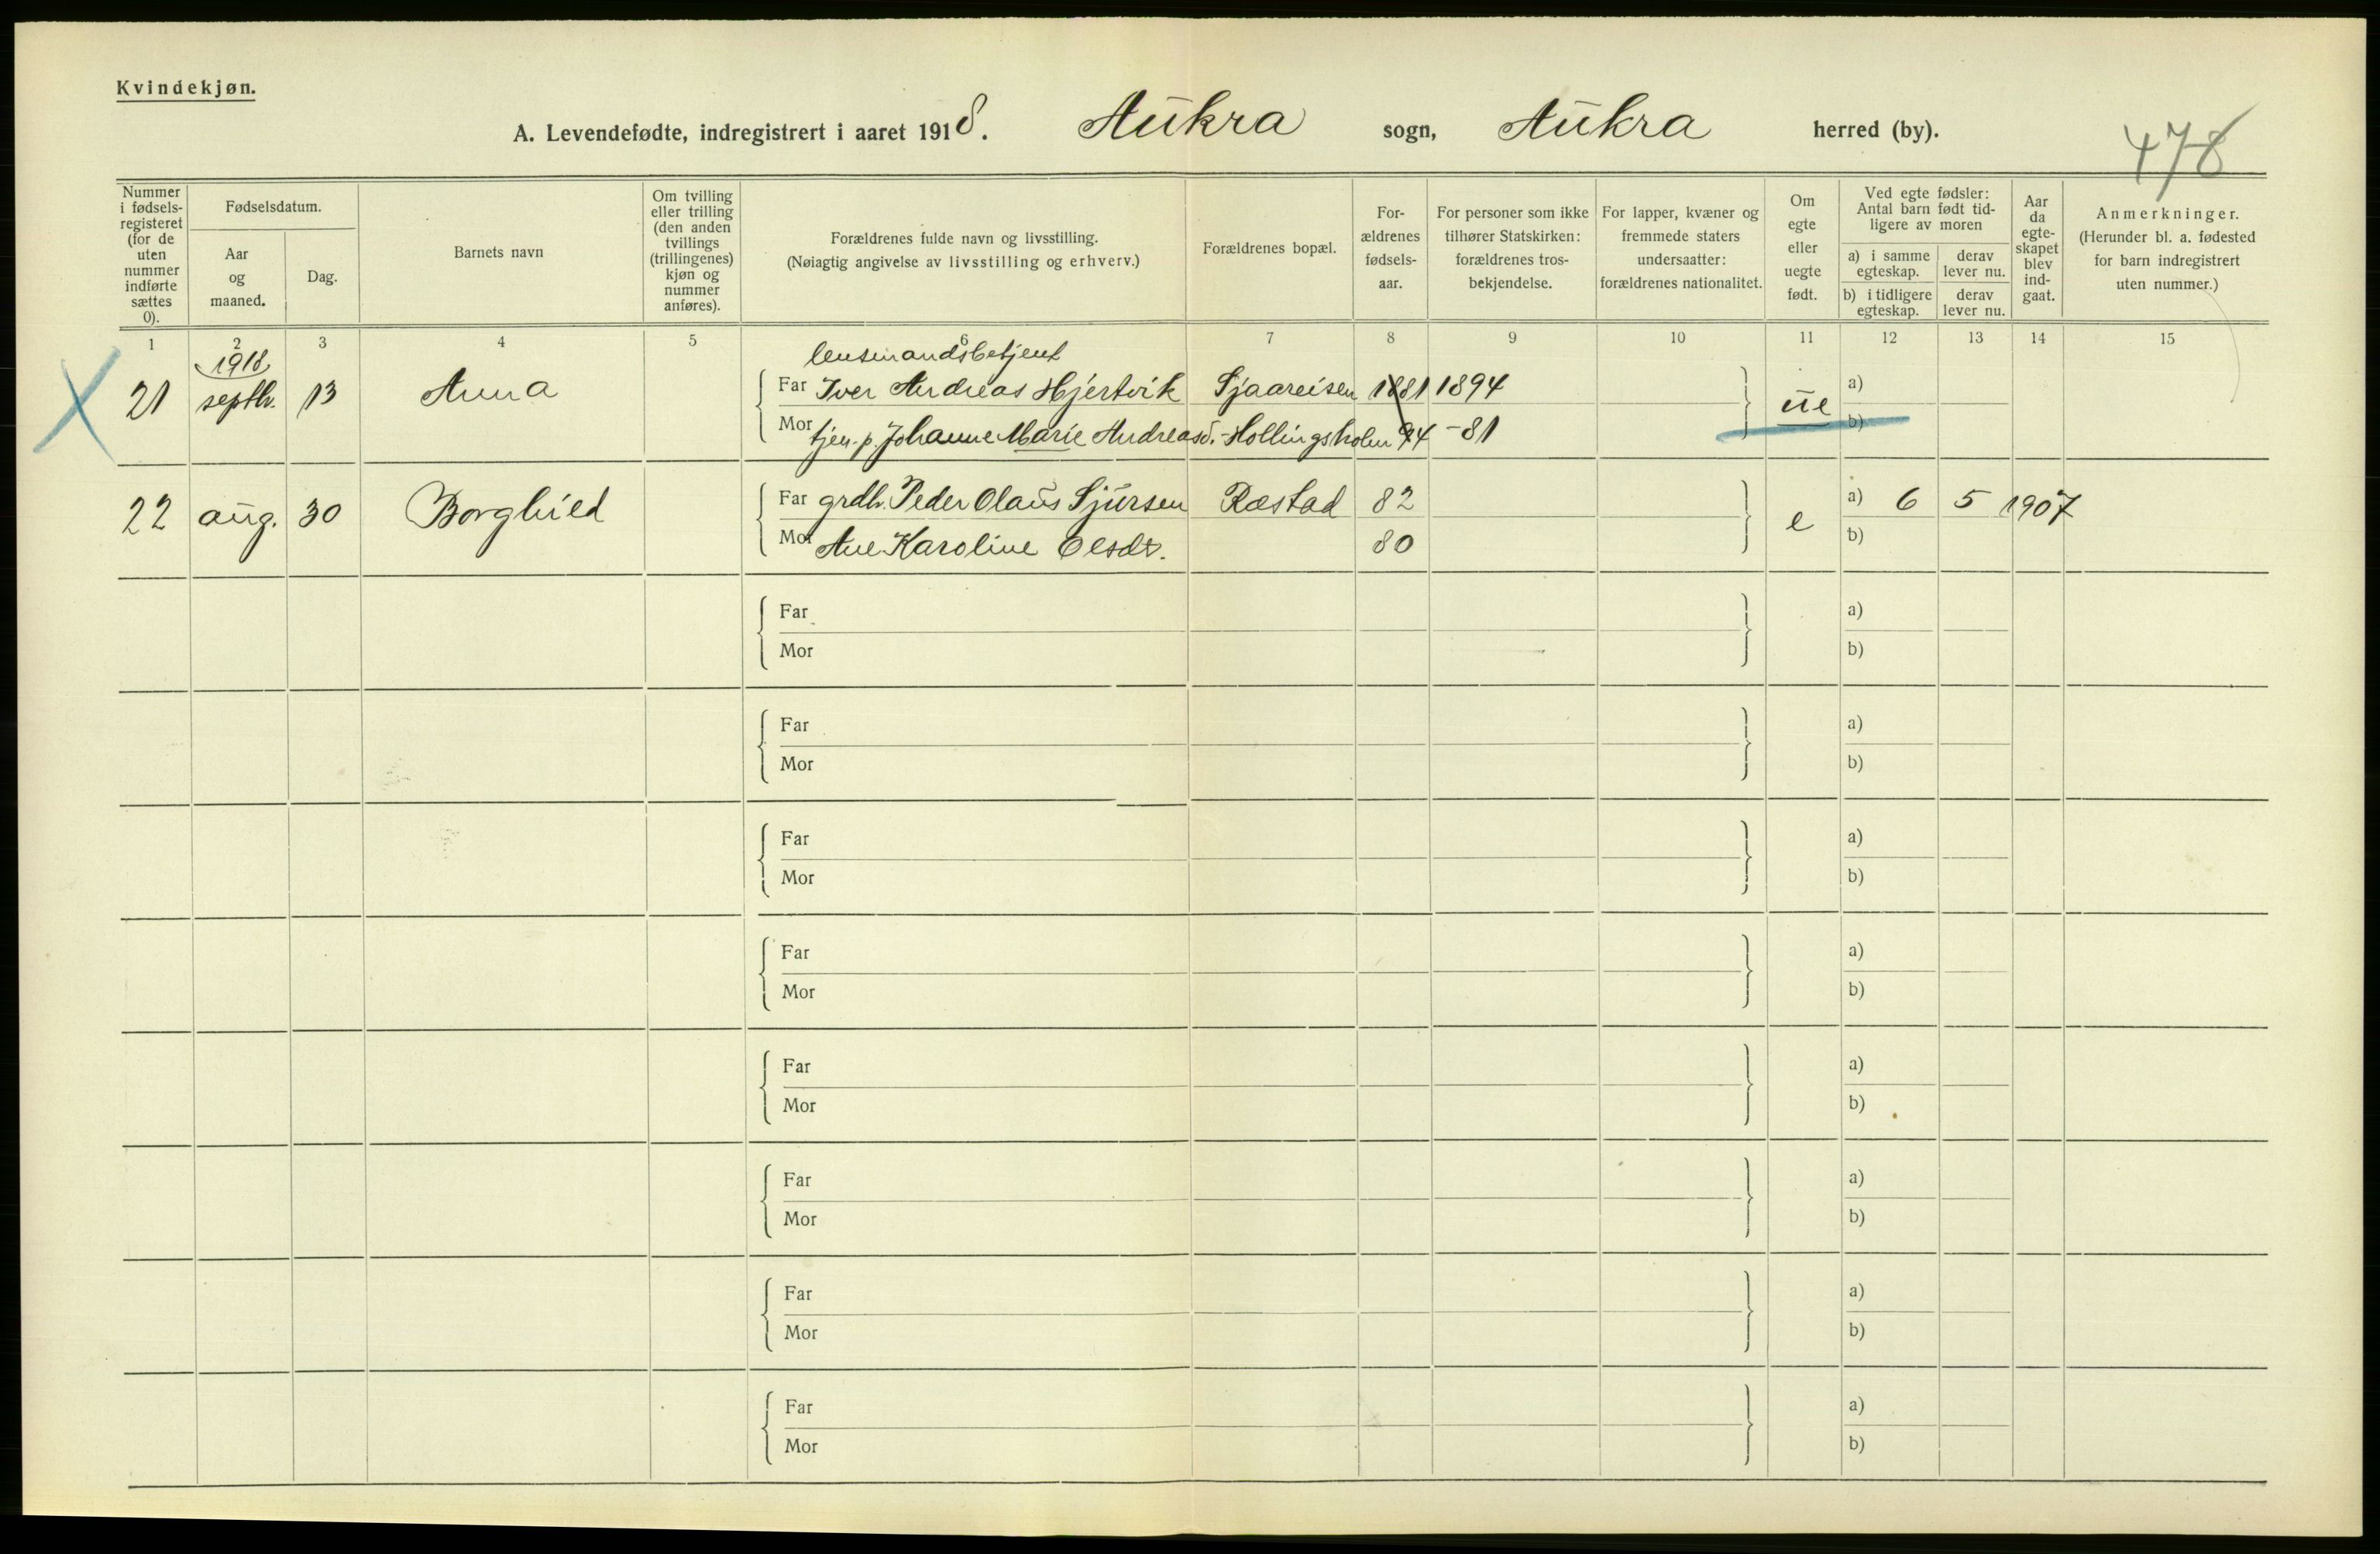 Kvindekjøn.
A. Levendefødte, indregistrert i aaret 1918. Aukra sogn, Aukra herred (by).
478
Nummer i fødsels-registeret (for de uten nummer indførte sættes 0).
Fødselsdatum.
Aar og maaned.
Dag.
Barnets navn
Om tvilling eller trilling (den anden tvillings (trillingenes) kjøn og nummer anføres).
Forældrenes fulde navn og livsstilling.
(Nøiagtig angivelse av livsstilling og erhverv.)
Forældrenes bopæl.
For-ældrenes fødsels-aar.
For personer som ikke tilhører Statskirken: forældrenes tros-bekjendelse.
For lapper, kvæner og fremmede staters undersaatter: forældrenes nationalitet.
Om egte eller uegte født.
Ved egte fødsler: Antal barn født tid-ligere av moren
a) i samme egteskap.
derav lever nu.
b) i tidligere egteskap.
derav lever nu.
Aar da egte-skapet blev ind-gaat.
Anmerkninger.
(Herunder bl. a. fødested for barn indregistrert uten nummer.)
1 2 3 4 5 6 7 8 9 10 11 12 13 14 15
1918
lensmandsbetjent
21 septbr. 13 Anna Far Iver Andreas Hjertvik Sjaareisen 1881 1894 ue a)
Mor tjen.p. Johanne Marie Andreasd. Hollingsholm 94 -81 b)
22 aug. 30 Borghild Far grdbr. Peder Olaus Sjursen Ræstad 82 e a) 6 5 1907
Mor Ane Karoline Olsdt. 80 b)
Far a)
Mor b)
Far a)
Mor b)
Far a)
Mor b)
Far a)
Mor b)
Far a)
Mor b)
Far a)
Mor b)
Far a)
Mor b)
Far a)
Mor b)